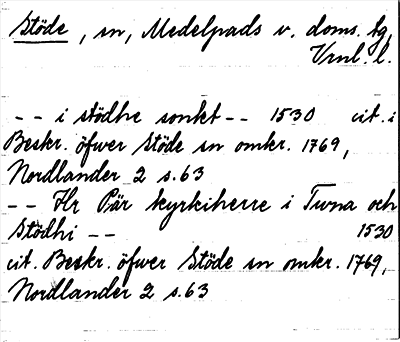 Stöde, sn, Medelpads v. doms. tg,
Vrnl. l.
-- i stödhe sonkt -- 1530 cit. i
Beskr. öfwer Stöde sn omkr. 1769,
Nordlander 2 s. 63
-- Hr Pär kyrkiherre i Tuna och
Stödhi -- 1530
cit. Beskr. öfwer Stöde sn omkr. 1769,
Nordlander 2 s. 63